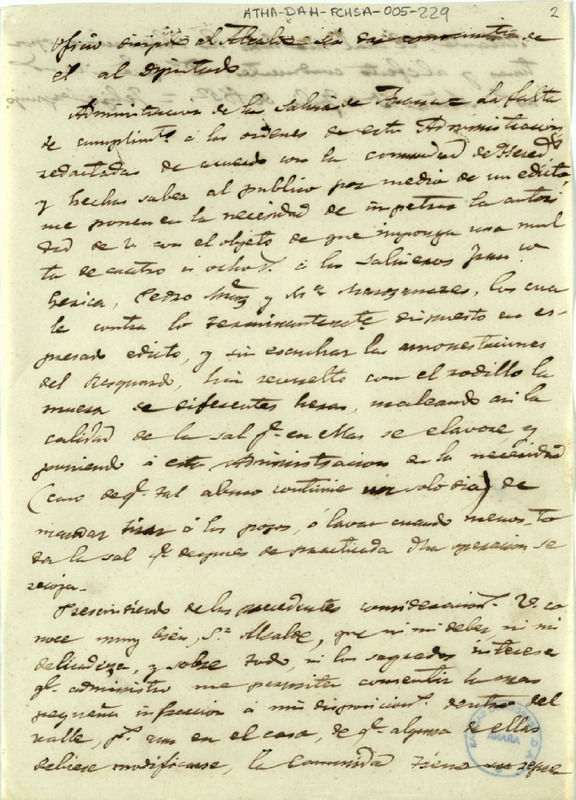 ATHA-DAH-FCHSA-005-229
2
Oficio dirigido al Alcalde de la
él al Diputado
Administracion de la Salina de La falta
de cumplimto. á las ordenes de esta Administracion
redactadas de acuerdo con la comunidad de Hereds.
y hechas saber al publico por medio de un edicto
me ponen en la necesidad de impetrar la autori
dad de V. con el objeto de que imponga una mul
ta de cuatro á ocho á los Salineros Juan
Gesica, Pedro y Ma. Manzanares, los cua
le contra lo terminantemte. dispuesto en es-
presado edicto, y sin escuchar las amonestaciones
del Resguardo, han revuelto con el rodillo la
muera de diferentes heras, maleando asi la
calidad de la sal q. en ellas se elavore y
poniendo á esta Administracion en la necesidad
(caso de q. tal abuso continúe un solo dia) de
mandar tirar á los pozos, ó lavar cuando menos to
da la sal q. despues de practicada dha operacion se
recoja.
Prescindiendo de las precedentes consideracions. Vd. co
noce muy bien, Sr. Alcalde, que ni mi deber, ni mi
delicadeza, y sobre todo, ni los sagrados interese
q. administro me permiten consentir la mas
pequeña infraccion á mis disposicions. dentro del
valle, ps. aun en el caso, de q. alguna de ellas
debiese modificarse, la Comunidad tiene su repre